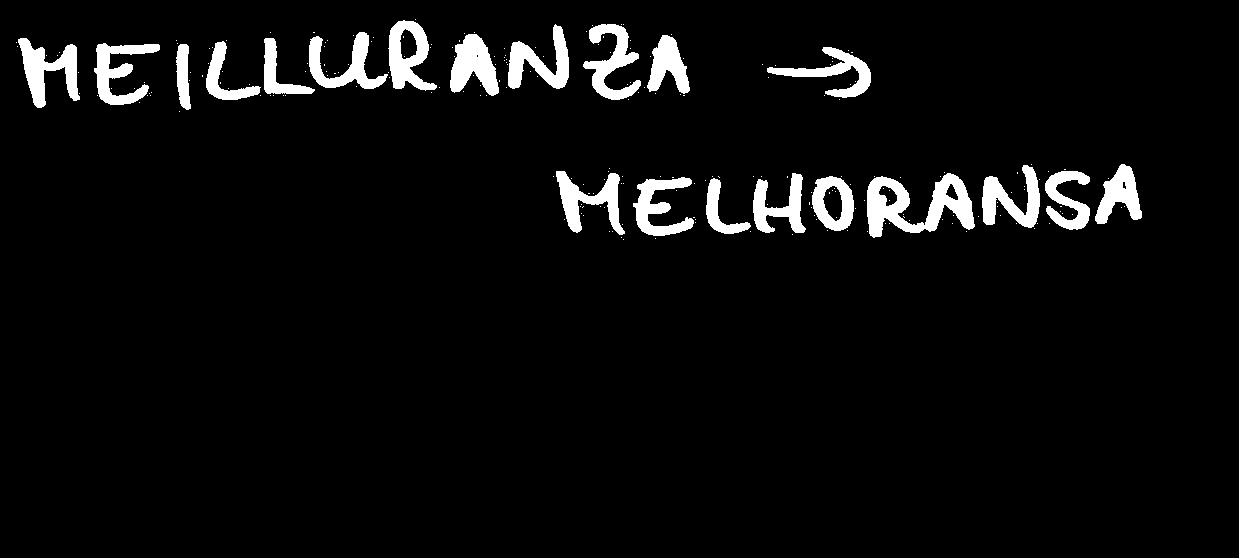 MEILLURANZA →
MELHORANSA